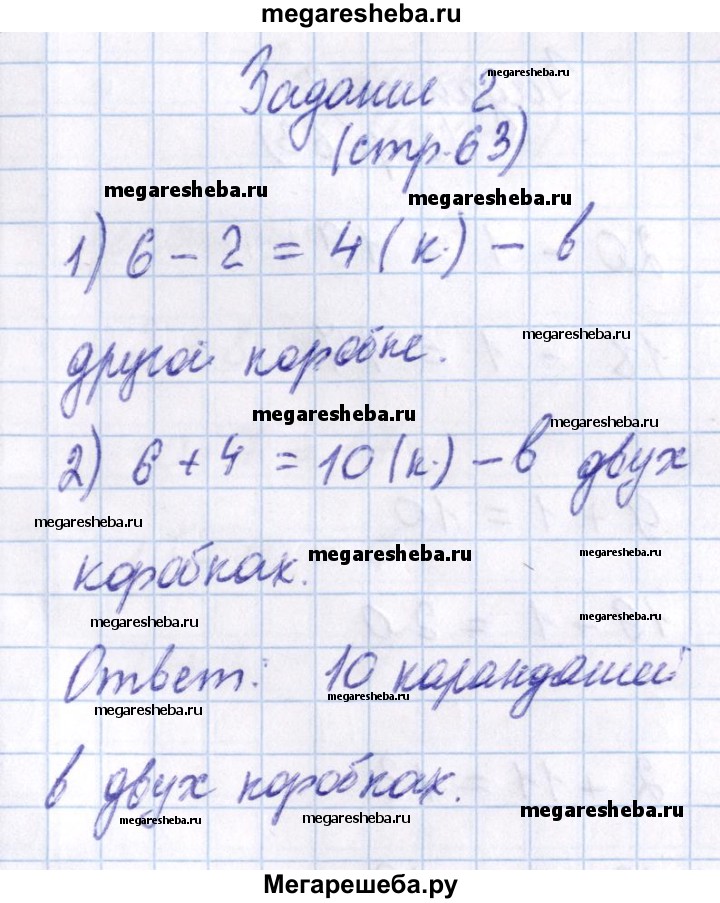 megaresheba.ru
Задание 2
megaresheba.ru
(стр.63)
megaresheba.ru
megaresheba.ru
1) 6 - 2 = 4 (к.) - в
megaresheba.ru
другой коробке.
megaresheba.ru
megaresheba.ru
2) 6 + 4 = 10 (к.) - в двух
megaresheba.ru
megaresheba.ru
megaresheba.ru
коробках.
megaresheba.ru
megaresheba.ru
Ответ: 10 карандашей
megaresheba.ru
megaresheba.ru
в двух коробках.
megaresheba.ru
megaresheba.ru
megaresheba.ru
Мегарешеба.ру